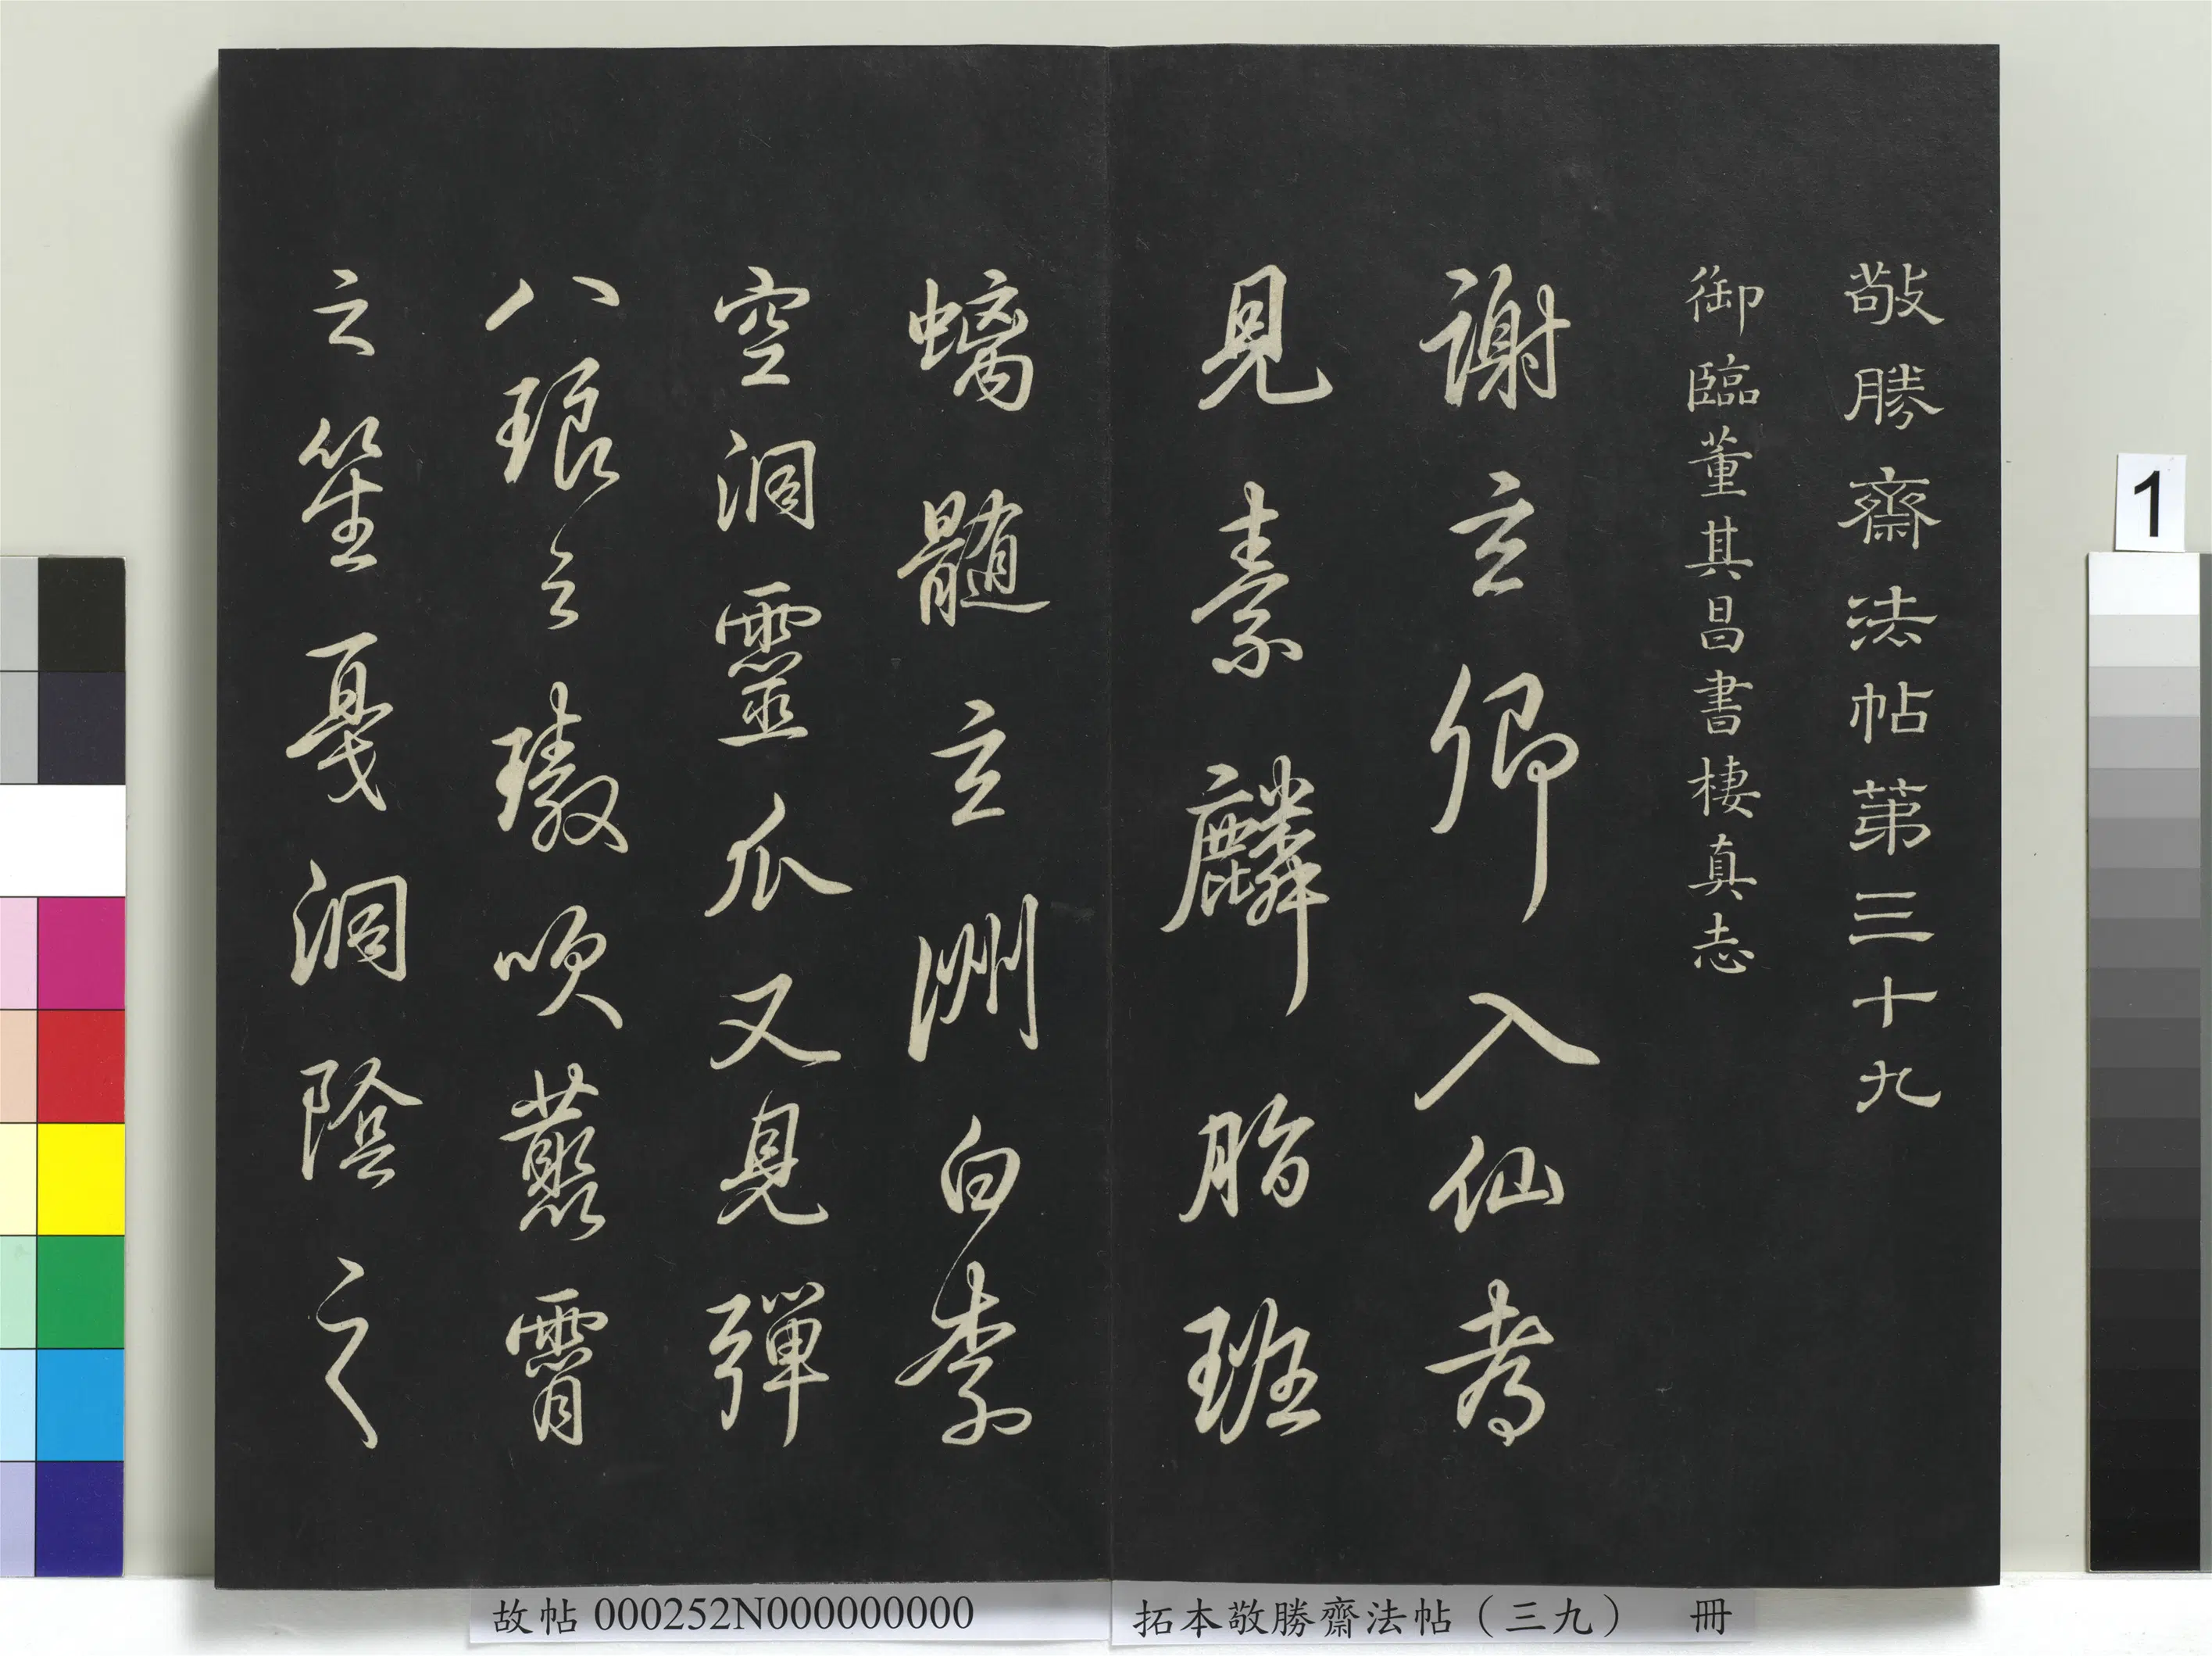 敬勝齋法帖第三十九
御臨董其昌書棲真志
謝玄卿入仙考
見素麟脂班
螭髓玄洲白柰
空洞靈瓜又見彈
八琅之璈吹藂霄
之笙戛洞陰之
1
故帖 000252N000000000
拓本敬勝齋法帖（三九） 冊